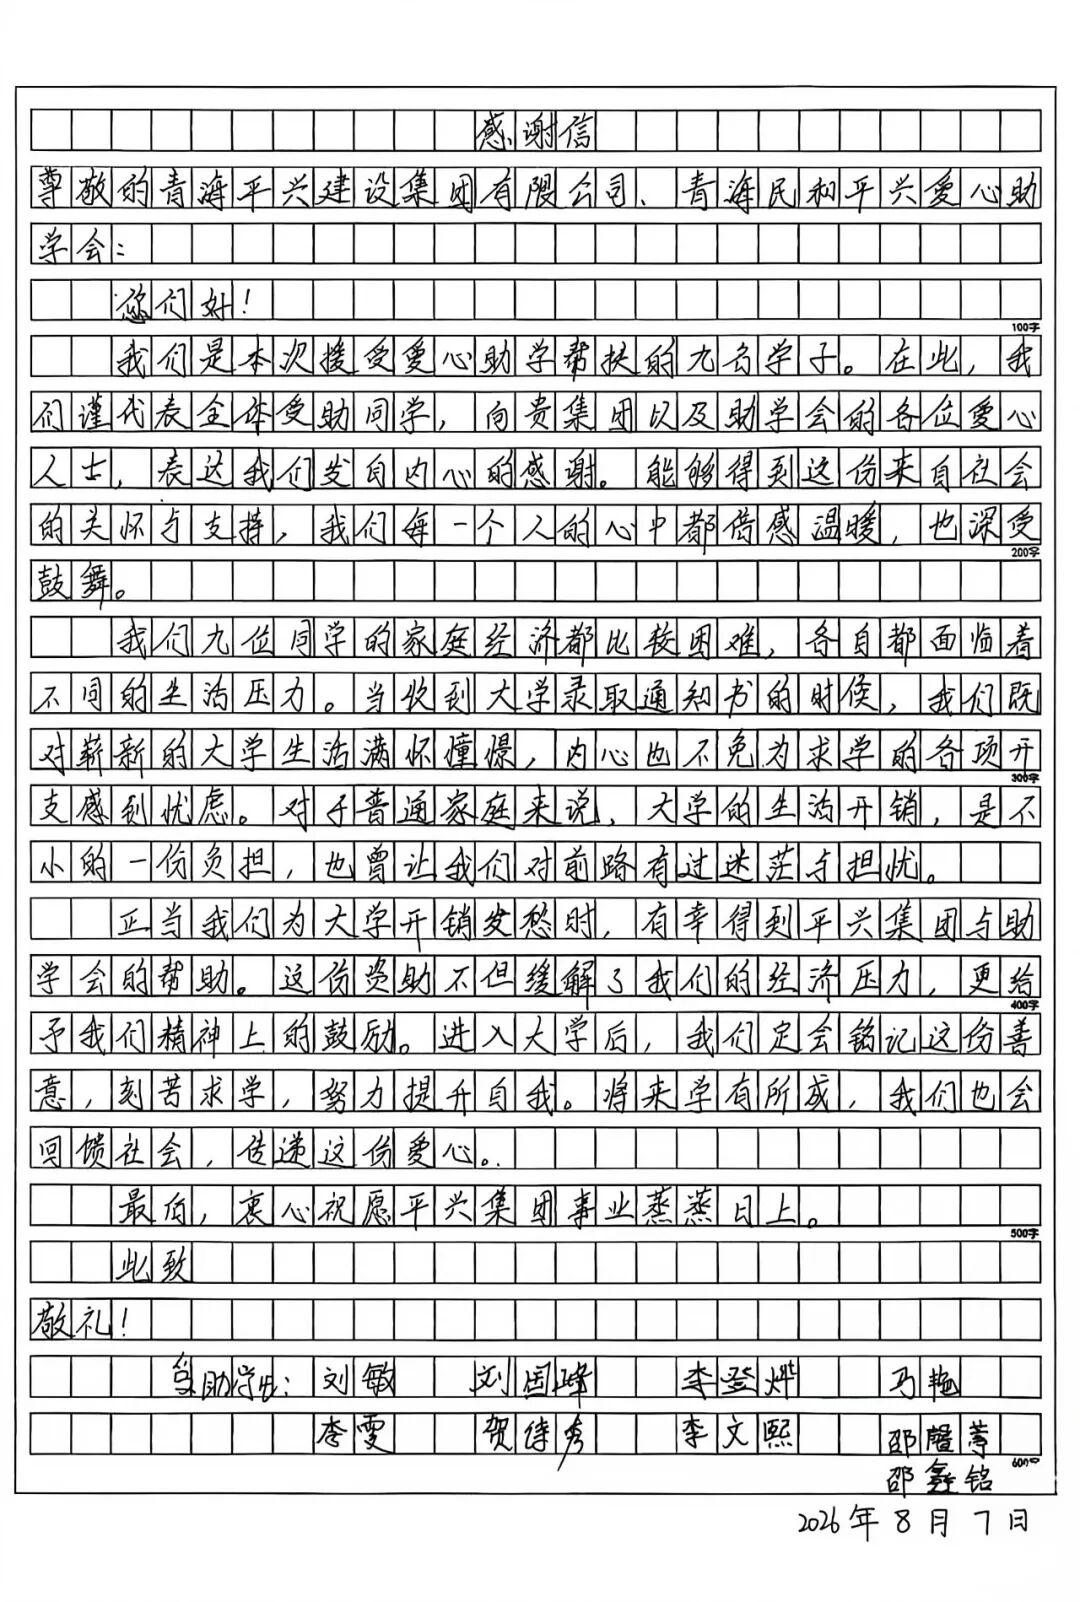 感谢信
尊敬的青海平兴建设集团有限公司、青海民和平兴爱心助
学会：
您们好！
100字
我们是本次接受爱心助学帮扶的九名学子。在此，我
们谨代表全体受助同学，向贵集团以及助学会的各位爱心
人士，表达我们发自内心的感谢。能够得到这份来自社会
的关怀与支持，我们每一个人的心中都倍感温暖，也深受
200字
鼓舞。
我们九位同学的家庭经济都比较困难，各自都面临着
不同的生活压力。当收到大学录取通知书的时候，我们既
对崭新的大学生活满怀憧憬，内心也不免为求学的各项开
300字
支感到忧虑。对于普通家庭来说，大学的生活开销，是不
小的一份负担，也曾让我们对前路有过迷茫与担忧。
正当我们为大学开销发愁时，有幸得到平兴集团与助
学会的帮助。这份资助不但缓解了我们的经济压力，更给
400字
予我们精神上的鼓励。进入大学后，我们定会铭记这份善
意，刻苦求学，努力提升自我。将来学有所成，我们也会
回馈社会，传递这份爱心。
最后，衷心祝愿平兴集团事业蒸蒸日上。
500字
此致
敬礼！
受助学生：刘敏 刘国峰 李登烨 马艳
李雯 贺佳秀 李文熙 邵馨萼
600字
邵鑫铭
2026年8月7日